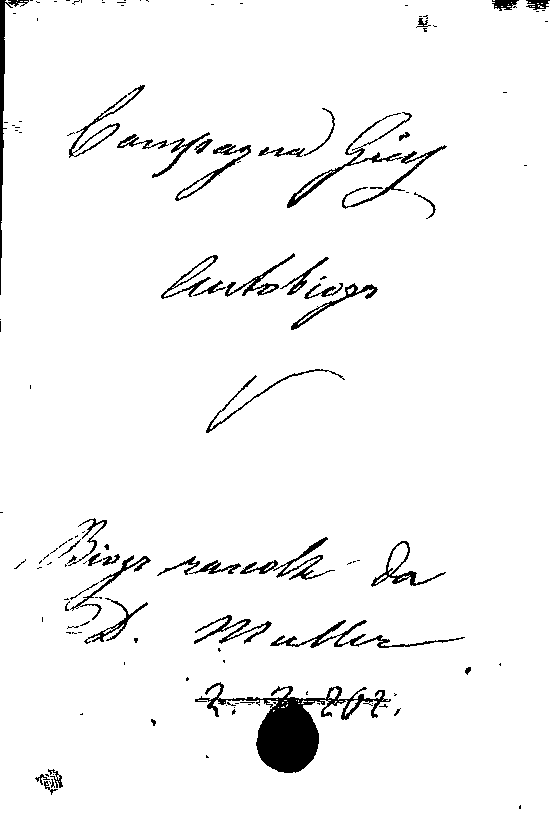 Campagna Gius
Autobiogr
Biogr raccolte da
D. Muller
2. 2. 202.